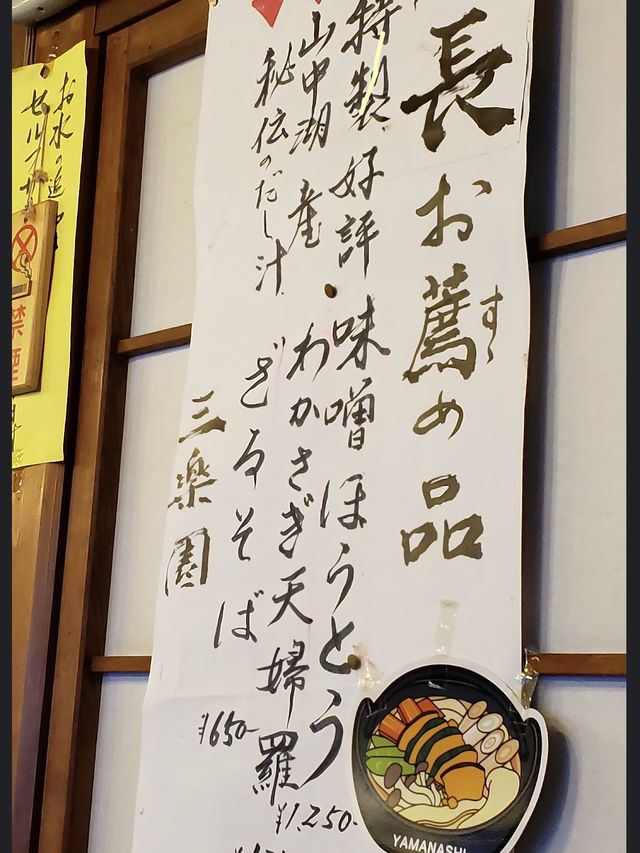 長お薦め品
すゝ
特製 好評 味噌ほうとう
山中湖産 わかさぎ天婦羅
¥1,250-
秘伝のだし汁 ざるそば
¥650-
三楽園
お水の追
セルフ
禁煙
YAMANASHI